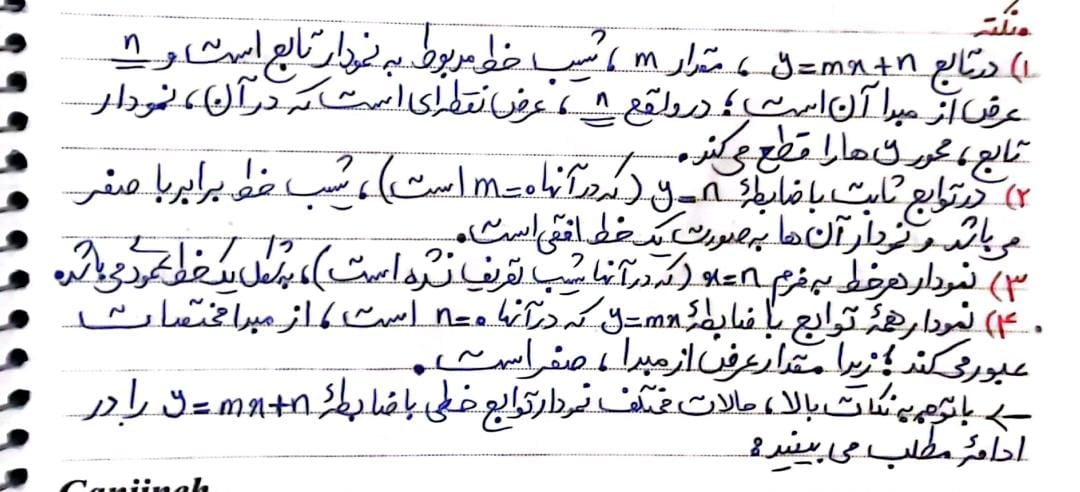 نکته
۱) در تابع y=mx+n، مقدار m، شیب خط مربوط به نمودار تابع است و n
عرض از مبدا آن است؛ در واقع n، عرض نقطه‌ای است که در آن، نمودار
تابع، محور yها را قطع می‌کند.
۲) در توابع ثابت با ضابطهٔ y=n (که در آنها m=۰ است)، شیب خط برابر با صفر
می‌باشد و نمودار آن ها به صورت یک خط افقی است.
۳) نمودار هر خط به فرم x=n (که در آنها شیب تعریف نشده است)، به شکل یک خط عمود می‌باشد.
۴) نمودار همهٔ توابع با ضابطهٔ y=mx که در آنها n=۰ است، از مبدا مختصات
عبور می‌کند؛ زیرا مقدار عرض از مبدا، صفر است.
← با توجه به نکات بالا، حالات مختلف نمودار توابع خطی با ضابطهٔ y=mx+n را در
ادامهٔ مطلب می بینید:
Ganjineh